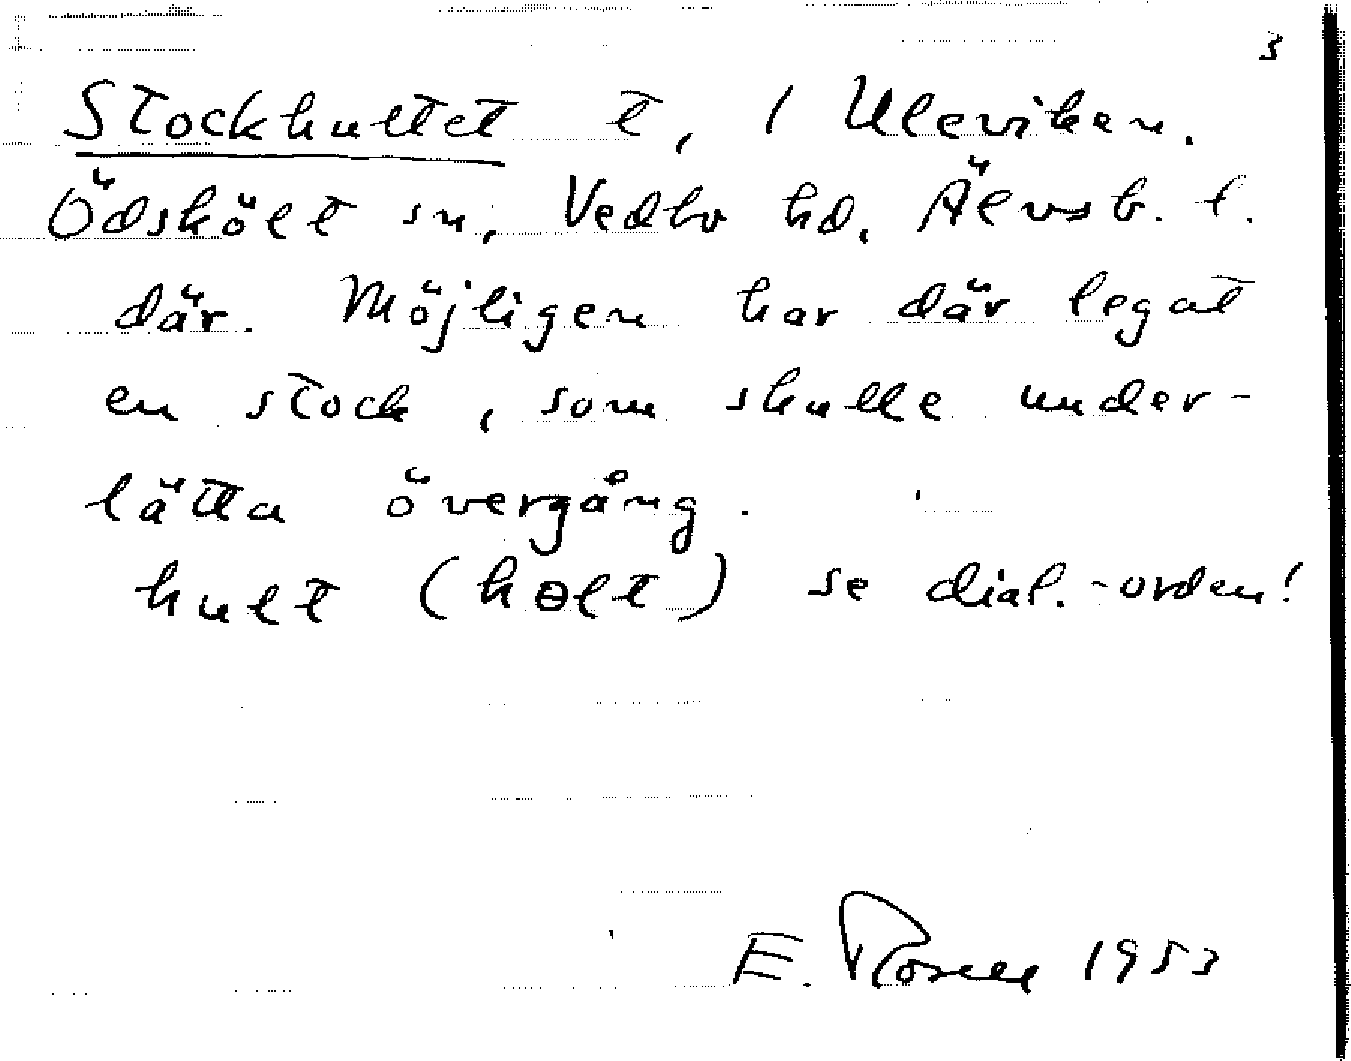 3
Stockhultet t, / Uleviken.
Ödskölt sn, Vedbo hd, Älvsb. l.
där. Möjligen har där legat
en stock, som skulle under-
lätta övergång.
hult (hɵlt) se dial.-orden!
E. Rosell 1953